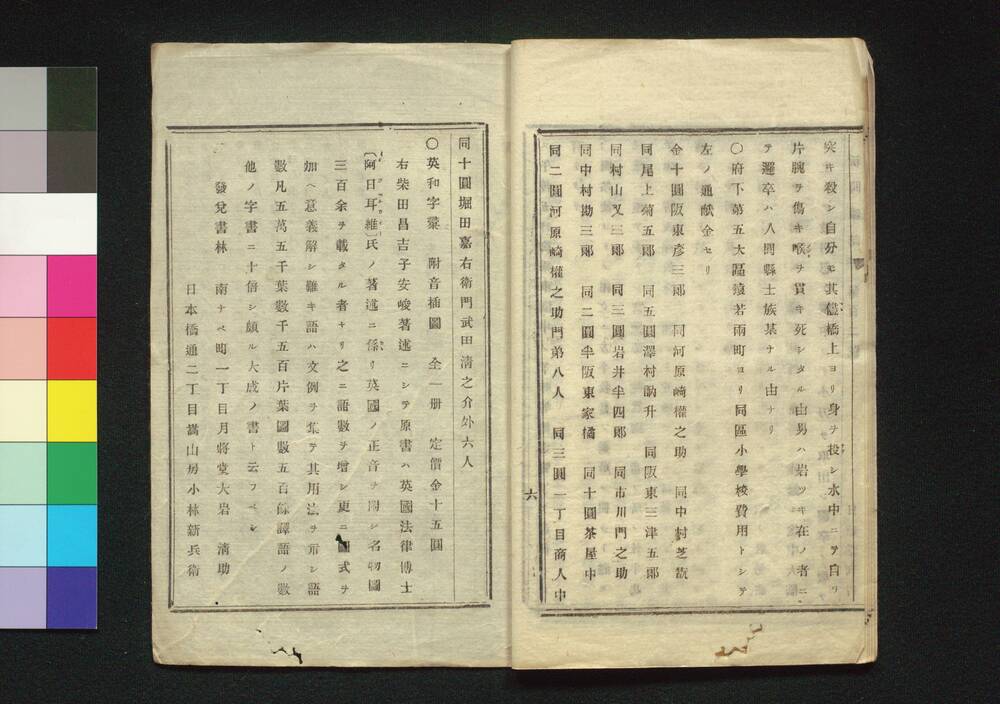 突キ殺シ自分モ其儘橋上ヨリ身ヲ投シ水中ニテ自ラ
片腕ヲ傷キ喉ヲ貫キ死シタル由男ハ岩ツキ在ノ者ニ
テ邏卒ハ入間縣士族某ナル由ナリ
〇府下第五大區猿若兩町ヨリ同區小學校費用トシテ
左ノ通献金セリ
金十圓阪東彦三郎 同河原崎權之助 同中村芝翫
同尾上菊五郎 同五圓澤村訥升 同阪東三津五郎
同村山又三郎 同三圓岩井半四郎 同市川門之助
同中村勘三郎 同二圓半阪東家橘 同十圓茶屋中
同二圓河原崎權之助門弟八人 同三圓一丁目商人中
六
同十圓堀田嘉右衛門武田清之介外六人
〇英和字彙 附音插圖 全一册 定價金十五圓
右柴田昌吉子安峻著述ニシテ原書ハ英國法律博士
〔阿日耳維〕氏ノ著述ニ係リ英國ノ正音ヲ附シ名物圖
三百余ヲ載タル者ナリ之ニ語數ヲ増シ更ニ圖式ヲ
加ヘ意義解シ難キ語ハ文例ヲ集テ其用法ヲ示シ語
數凡五萬五千葉數千五百片葉圖數五百餘譯語ノ數
他ノ字書ニ十倍シ頗ル大成ノ書ト云フベシ
發兌書林 南ナベ町一丁目月將堂大岩 清助
日本橋通二丁目嵩山房小林新兵衛